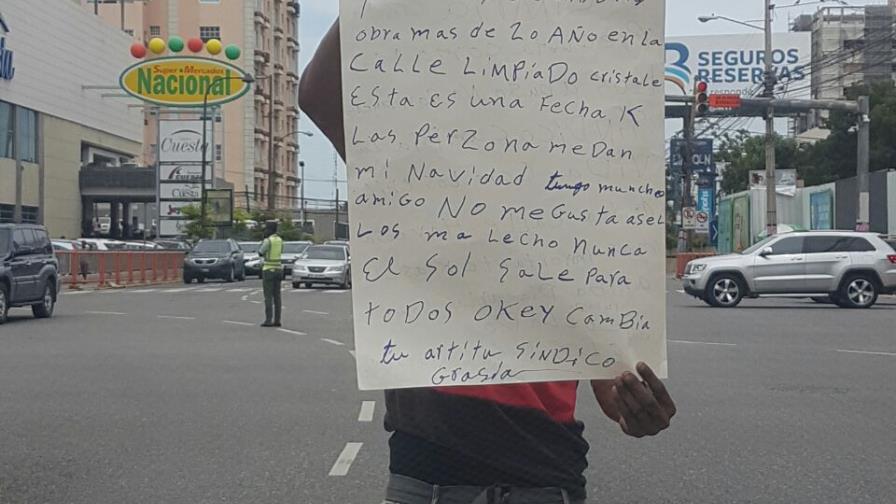 obramas de 20 AÑO en la
CaLLe LiMPiaDo cristale
Esta es una Fecha K
Las Perzona me Dan
mi Navidad tungo munche
amigo No me Gusta asel
Los ma Lecho Nunca
El Sol Sale Para
toDos oKEY CamBia
tu artitu SiNDiCo
Grasia
Super•Mercados
Nacional
Cuesta
Cuesta
SEGUROS
RESERVAS